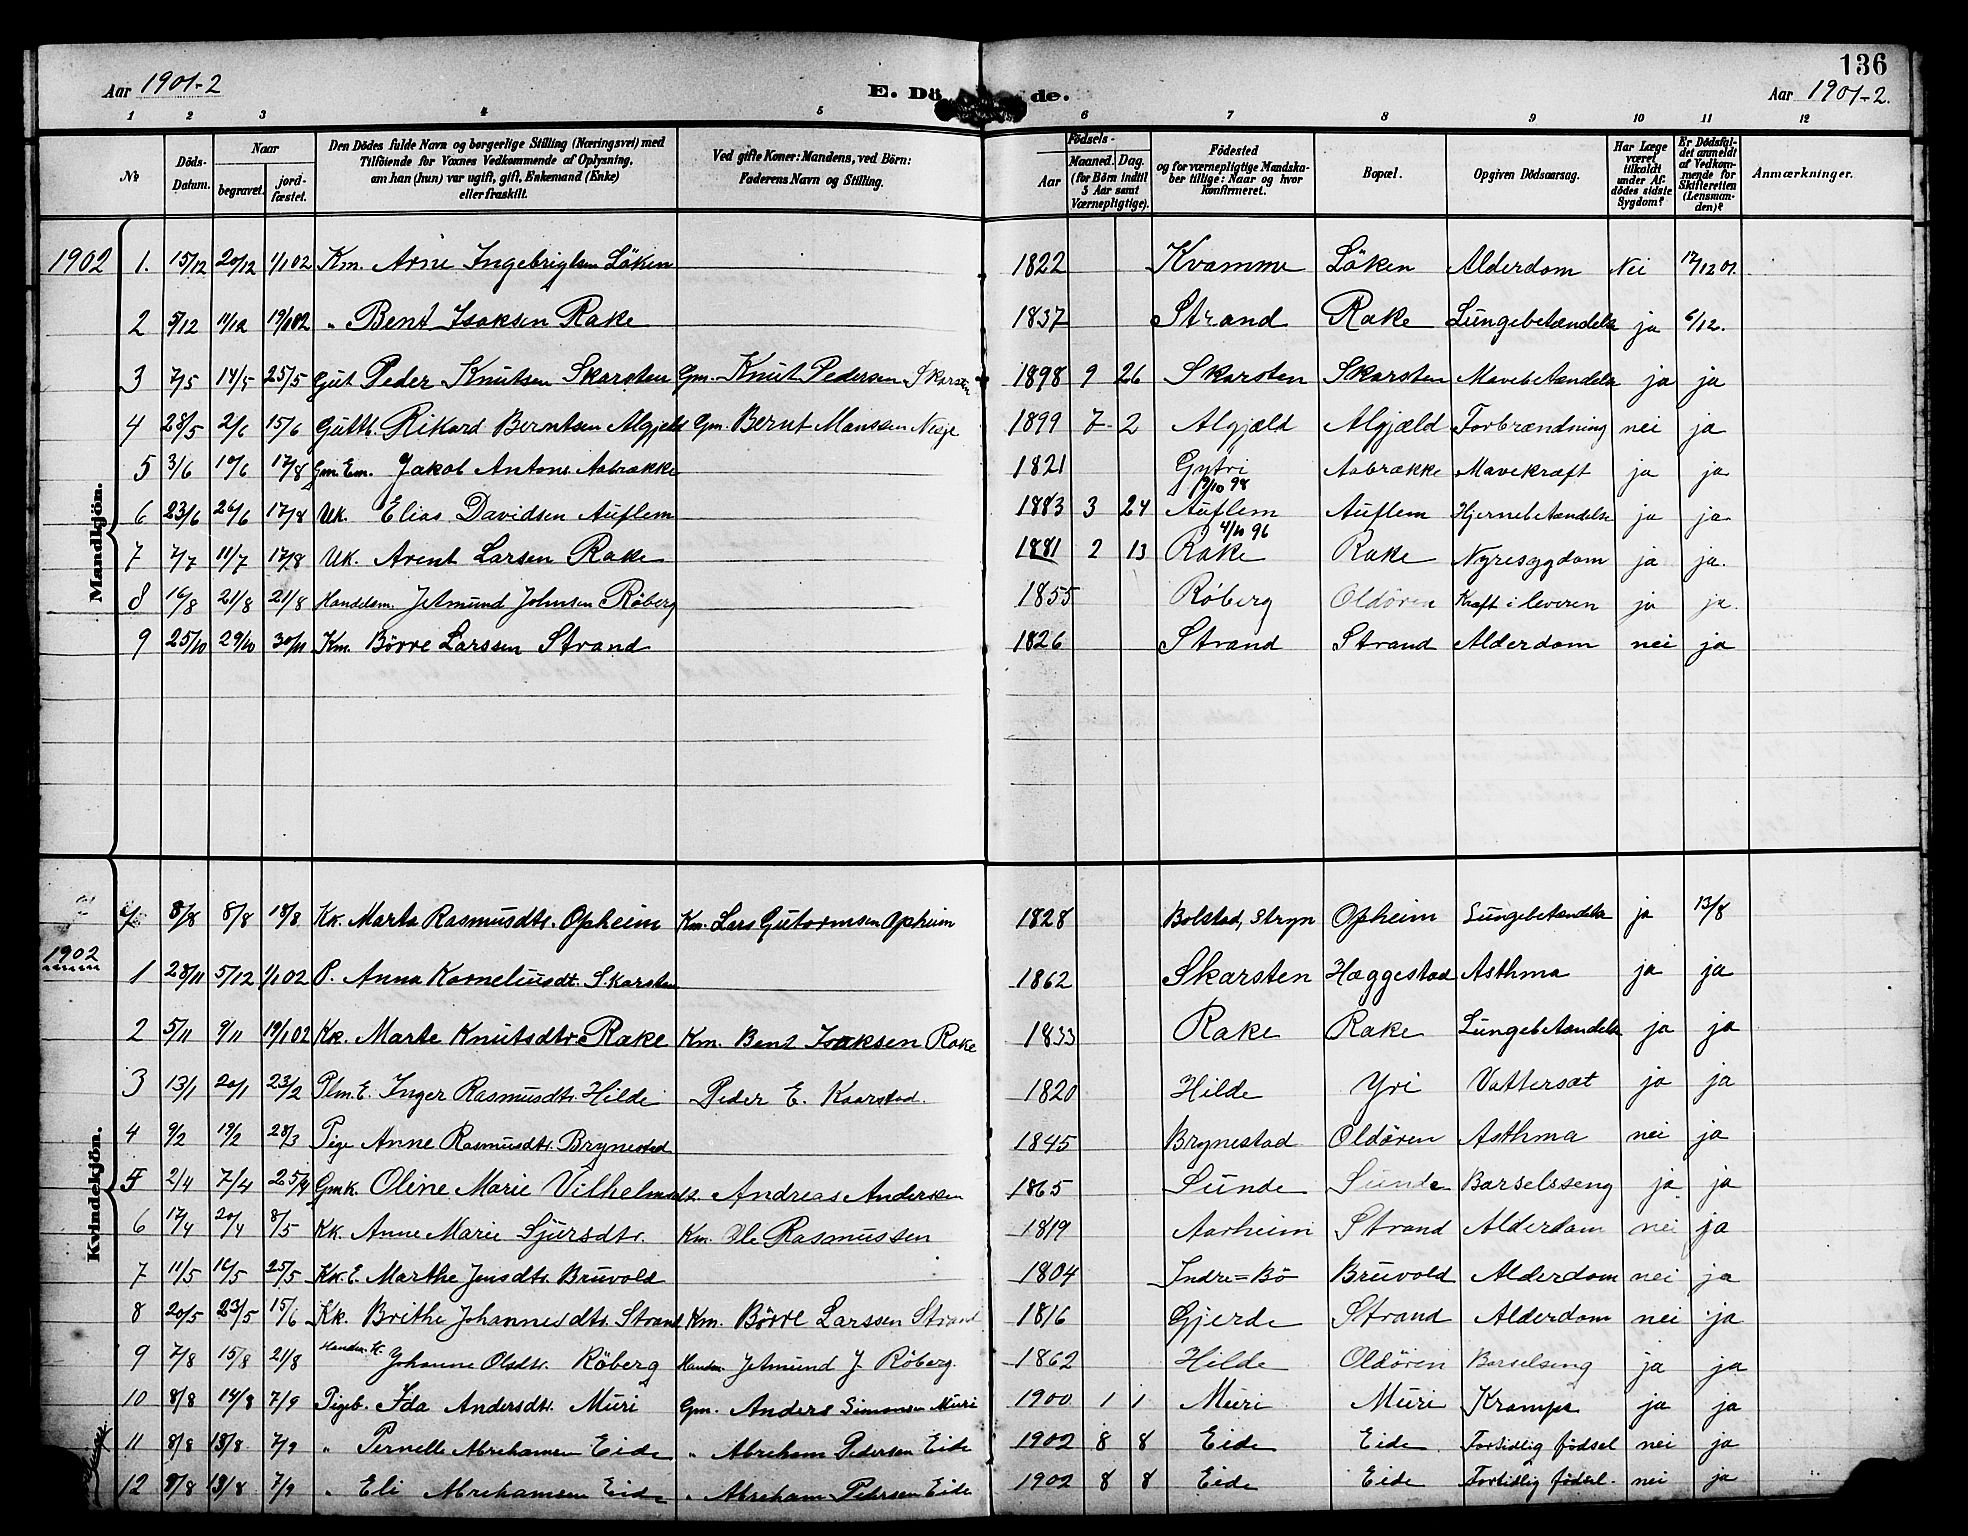 136
Aar 1901-2
E. Dö de.
Aar 1901-2.
1 2 3 4 5 6 7 8 9 10 11 12
No
Döds-Datum.
Naar begravet. jordfæstet.
Den Dödes fulde Navn og borgerlige Stilling (Næringsvei) med Tilföiende for Voxnes Vedkommende af Oplysning, om han (hun) var ugift, gift, Enkemand (Enke) eller fraskilt.
Ved gifte Koner: Mandens, ved Börn: Faderens Navn og Stilling.
Födsels- Aar Maaned. Dag. (for Börn indtil 5 Aar samt Værnepligtige).
Födested og for værnepligtige Mandskaber tillige: Naar og hvor konfirmeret.
Bopæl.
Opgiven Dödsaarsag.
Har Læge været tilkaldt under Afdödes sidste Sygdom?
Er Dödsfaldet anmeldt af Vedkommende for Skifteretten (Lensmanden)?
Anmærkninger.
Mandkjön.
1902 1. 15/12 20/12 1/1 02 Km. Arne Ingebrigtsen Löken 1822 Kvamme Löken Alderdom Nei 17/12 01.
2 5/12 11/12 19/1 02 " Bent Isaksen Rake 1837 Strand Rake Lungebetændelse ja 6/12.
3 7/5 14/5 25/5 Gut Peder Knutsen Skarsten Gm. Knut Pedersen Skarsten 1898 9 26 Skarsten Skarsten Mavebetændelse ja ja
4 28/5 2/6 15/6 Gutth. Rikard Berntsen Algjeld Gm. Bernt Monssen Nesje 1899 7 2 Algjæld Algjæld Forbrændning nei ja
5 3/6 10/6 17/8 Gm. Em. Jakob Antons Aabrække 1821 Gytri Aabrække Mavekræft ja ja
6 23/6 26/6 17/8 Uk. Elias Davidsen Auflem 1883 3 24 9/10 98 Auflem Auflem Hjernebetændelse ja ja
7 7/7 11/7 17/8 Uk. Arent Larsen Rake 1881 2 13 4/10 96 Rake Rake Nyresygdom ja ja.
8 16/8 21/8 21/8 Handelsm. Jetmund Johnsen Röberg 1855 Röberg Oldören Kræft i leveren ja ja.
9 25/10 29/10 30/11 Km. Börre Larssen Strand 1826 Strand Strand Alderdom nei ja
Kvindekjön.
8/8 8/8 18/8 Kk. Marta Rasmusdtr. Opheim Km. Lars Gutormsen Opheim 1828 Bolstad, Stryn Opheim Lungebetændelse ja 13/8
1902
1 28/11 5/12 1/1 02 P. Anna Korneliusdt. Skarsten 1862 Skarsten Hæggestad Asthma ja ja
2 5/11 9/11 19/1 02 Kk. Marte Knutsdtr. Rake Km. Bent Isaksen Rake 1833 Rake Rake Lungebetændelse ja ja
3 13/1 20/1 23/2 Plm. E. Inger Rasmusdtr. Hilde Peder E. Kaarstad. 1820 Hilde Yri Vattersot ja ja
4 9/2 19/2 28/3 Pige Anne Rasmusdtr. Brynestad 1845 Brynestad Oldören Asthma nei ja
5 2/4 7/4 25/4 Gmk. Oline Marie Vilhelmsdt. Andreas Andersen 1865 Sunde Sunde Barselsseng ja ja
6 17/4 20/4 8/5 Kk. Anne Marie Sjursdtr. Km. Ole Rasmussen 1819 Aarheim Strand Alderdom nei ja
7 11/5 16/5 25/5 Kk. E. Marthe Jensdtr. Bruvold 1804 Indre=Bö Bruvold Alderdom nei ja
8 20/5 23/5 15/6 Kk. Brithe Johannesdtr. Strand Km. Börre Larssen Strand 1816 Gjerde Strand Alderdom nei ja
9 7/8 15/8 21/8 Handm. K. Johanne Olsdtr. Röberg Handm. Jetmund J. Röberg. 1862 Hilde Oldören Barselseng ja ja
10 8/8 14/8 7/9 Pigeb. Ida Andersdtr. Muri Gm. Anders Simonsen Muri 1900 1 1 Muri Muri Krampe ja ja
11 8/8 13/8 7/9 " Pernelle Abrahamsen Eide " Abraham Pedersen Eide 1902 8 8 Eide Eide Fortidlig födsel nei ja
12 8/8 13/8 7/9 " Eli Abrahamsen Eide " Abraham Pedersen Eide 1902 8 8 Eide Eide Fortidlig födsel. nei ja